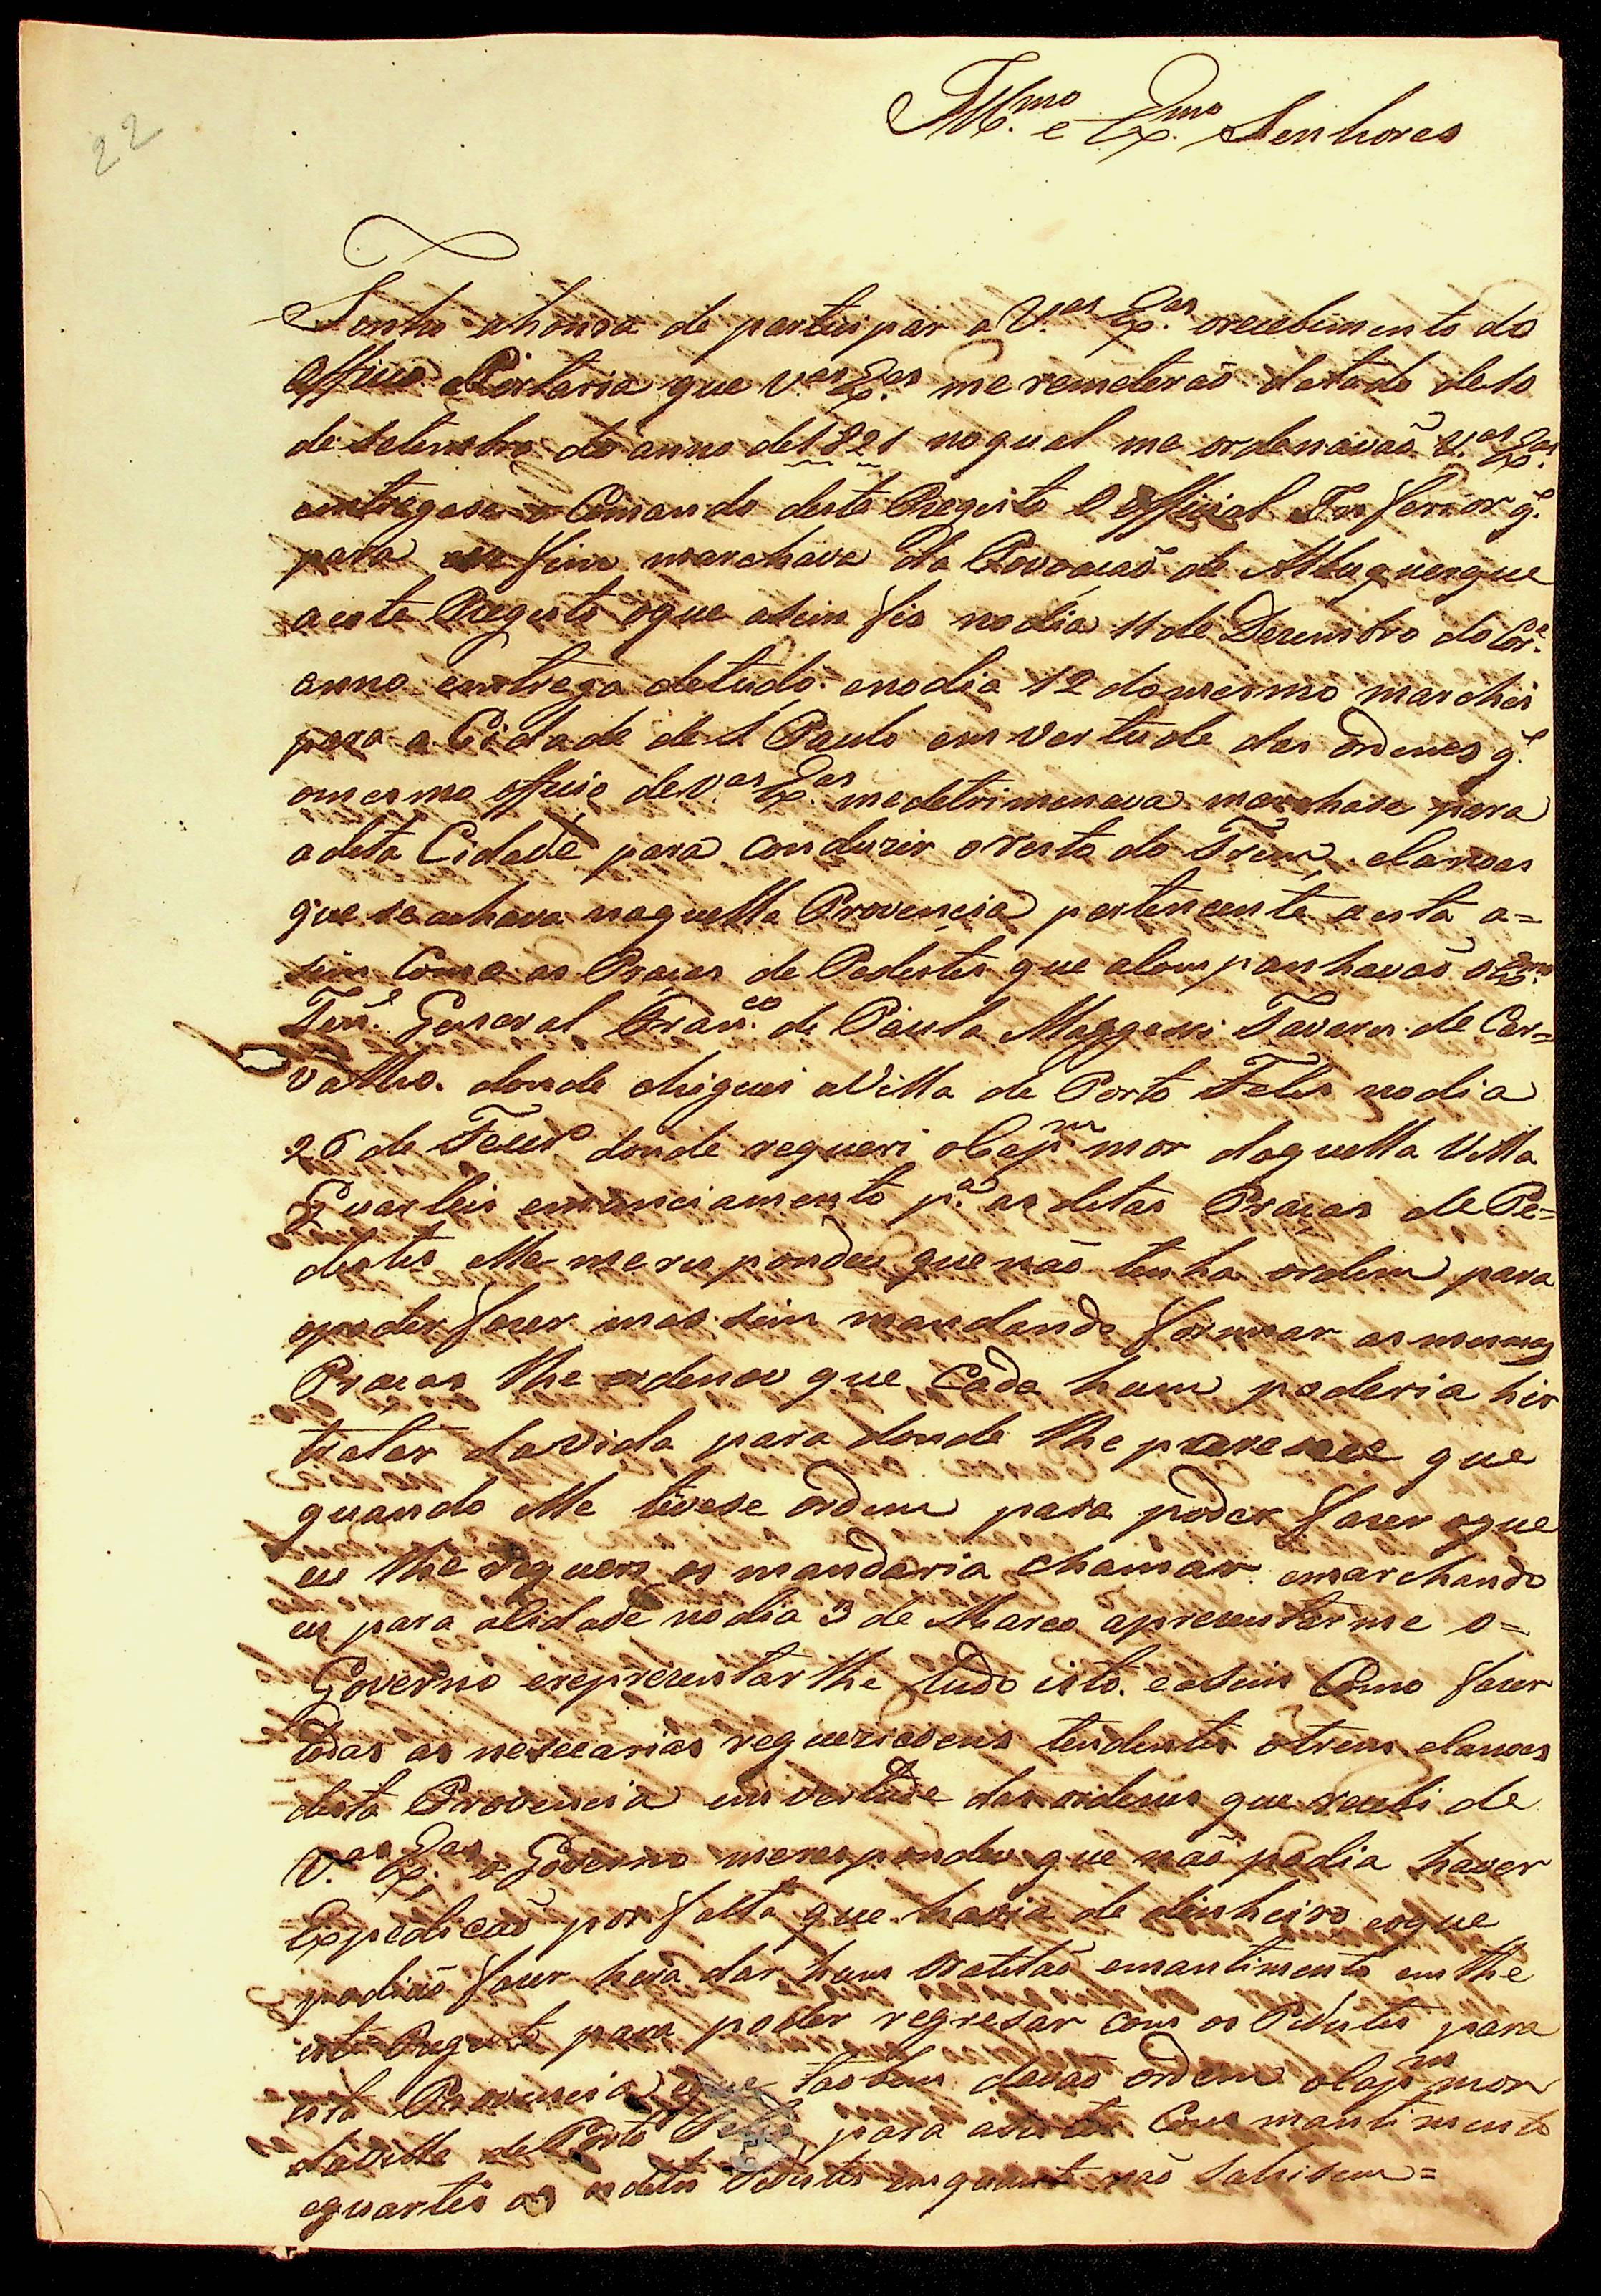 22
Ill.mo e Ex.mo Senhores
Tenho ahonra de partecipar a V.as Ex.as orecebimento do
Officio Portaria que V.as Ex.as me remeterão datado de 10
de Setembro do anno de 1821 noqual me ordenavão V.as Ex.as
entregase o Comando deste Registo O Official Inferior q.
para esse fim marchava da Povoacaõ de Albuquerque
a este Registo oque asim fis nodia 11 de Dezembro do Cor.e
anno entrega detudo. enodia 12 domesmo marchei
para a Cidade de S Paulo em vertude das ordenes q.
omesmo officio de V.as Ex.as medetrimenava marchase para
adeta Cidade para conduzir oresto do Trem, elanoas
que se achava naquella Provencia pertencente a esta a=
sim Como as Praças de Pedestes que alompanhavaõ o Ex.mo
Ten.e General Fran.co de Paula Maggessi Tavares de Car=
valho. donde cheguei aVilla de Porto Felis nodia
26 de Feuer.o donde requeri oCap.m mor daquella Villa
Quarteis emuniciamento p.a as detas Praças de Pe=
destes elle me respondeu que naõ tenha ordem para
opoder faser mas sim mandando formar as mesmas
Pracas lhe ordenou que Cada hum poderia hir
tratar davida para donde lhe parecese que
quando elle tivese ordem para poder faser oque
eu lhe requeri os mandaria chamar. emarchando
eu para aCidade nodia 3 de Marco apresentarme o=
Governo erepresentarlhe tudo isto. easim Como faser
todas as nesecarias requezicoens tendentes otrem elanoas
desta Provencia em vertude das ordenes que recebi de
V.as Ex.as o Governo merespondeu que naõ podia haver
Expedicaõ por falta que havia de dinheiro eoque
podiaõ faser hera dar hum Batelaõ emantimento em the
este Registo para poder regresar com os Pedestes para
esta Provencia eque taobem davaõ ordem oCap.m mor
daVilla de Porto Felis para asestir Com mantimento
equarteis os detos Pedestes emquanto naõ Sahisem=